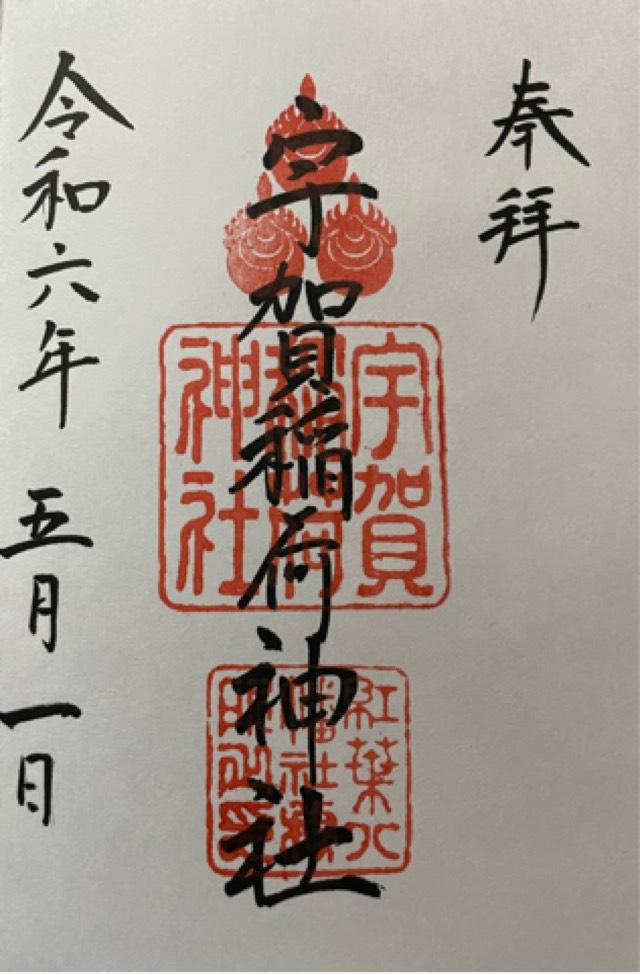 奉拝
宇賀稲荷神社
宇賀
稲荷
神社
紅葉八
幡社兼
令和六年 五月一日